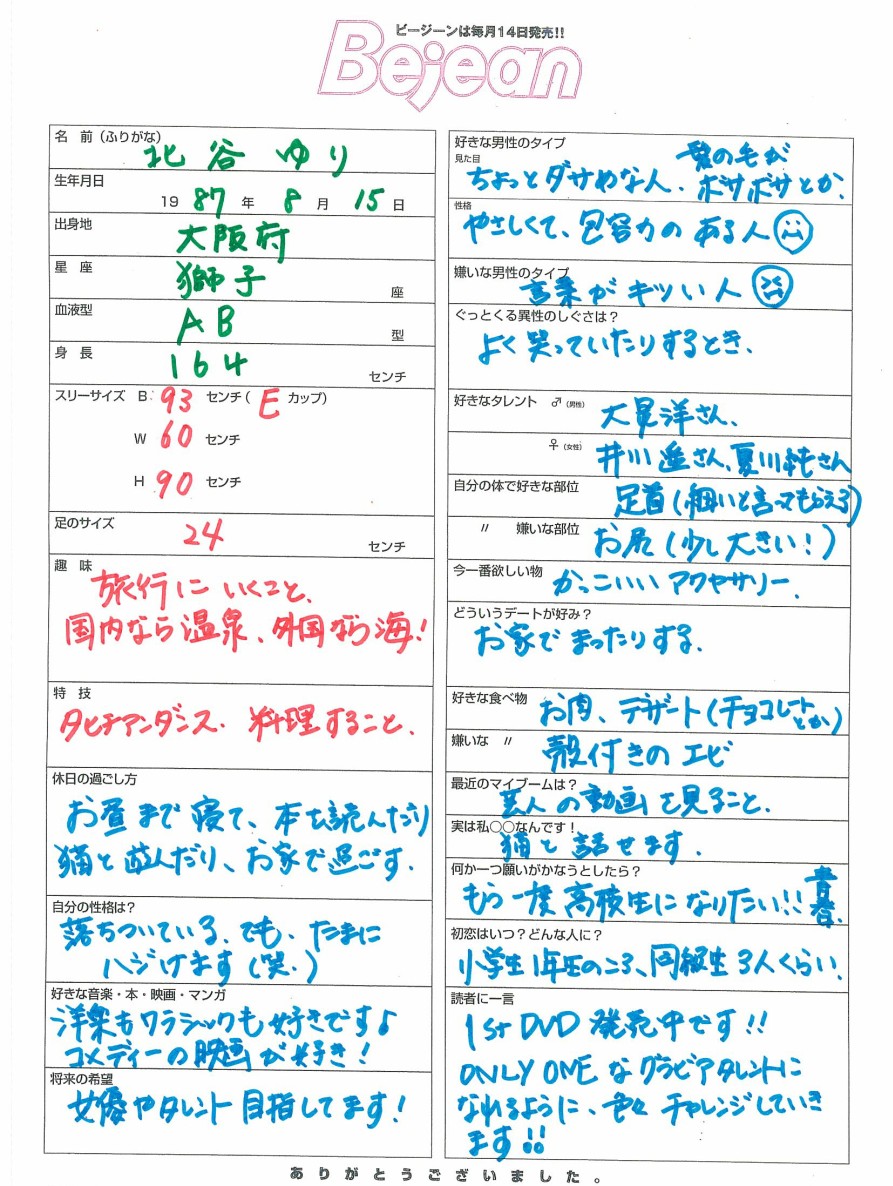 ビージーンは毎月14日発売!!
Bejean
名 前 (ふりがな)
北谷 ゆり
生年月日
19 87 年 8 月 15 日
出身地
大阪府
星 座
獅子 座
血液型
AB 型
身 長
164 センチ
スリーサイズ B: 93 センチ ( E カップ)
W 60 センチ
H 90 センチ
足のサイズ
24 センチ
趣 味
旅行に いくこと、
国内なら 温泉、外国なら 海!
特 技
タヒチアンダンス、料理すること、
休日の過ごし方
お昼まで 寝て、本を読んだり
猫と 遊んだり、お家で過ごす.
自分の性格は?
落ちついている、でも、たまに
ハジけます (笑.)
好きな音楽・本・映画・マンガ
洋楽もクラシックも好きです♪
コメディーの映画が好き!
将来の希望
女優やタレント目指してます!
好きな男性のタイプ
見た目
髪の毛が
ちょっとダサめな人、ボサボサとか、
性格
やさしくて、包容力の ある人
嫌いな男性のタイプ
言葉が キツい人
ぐっとくる異性のしぐさは?
よく笑っていたりするとき、
好きなタレント ♂ (男性) 大泉洋さん、
♀ (女性) 井川遥さん、夏川純さん
自分の体で好きな部位 足首 (細いと言ってもらえる)
〃 嫌いな部位 お尻 (少し大きい!)
今一番欲しい物 かっこいい アクセサリー、
どういうデートが好み?
お家で まったりする.
好きな食べ物 お肉、デザート (チョコレートとか)
嫌いな 〃 殻付きの エビ
最近のマイブームは?
芸人の動画を見ること、
実は私○○なんです!
猫と 話せます.
何か一つ願いがかなうとしたら?
もう一度 高校生になりたい!! 青春.
初恋はいつ?どんな人に?
小学生1年生のころ、同級生3人くらい、
読者に一言
1st DVD 発売中です!!
ONLY ONE な グラビアタレントに
なれるように、色々 チャレンジしていき
ます!!
ありがとうございました。